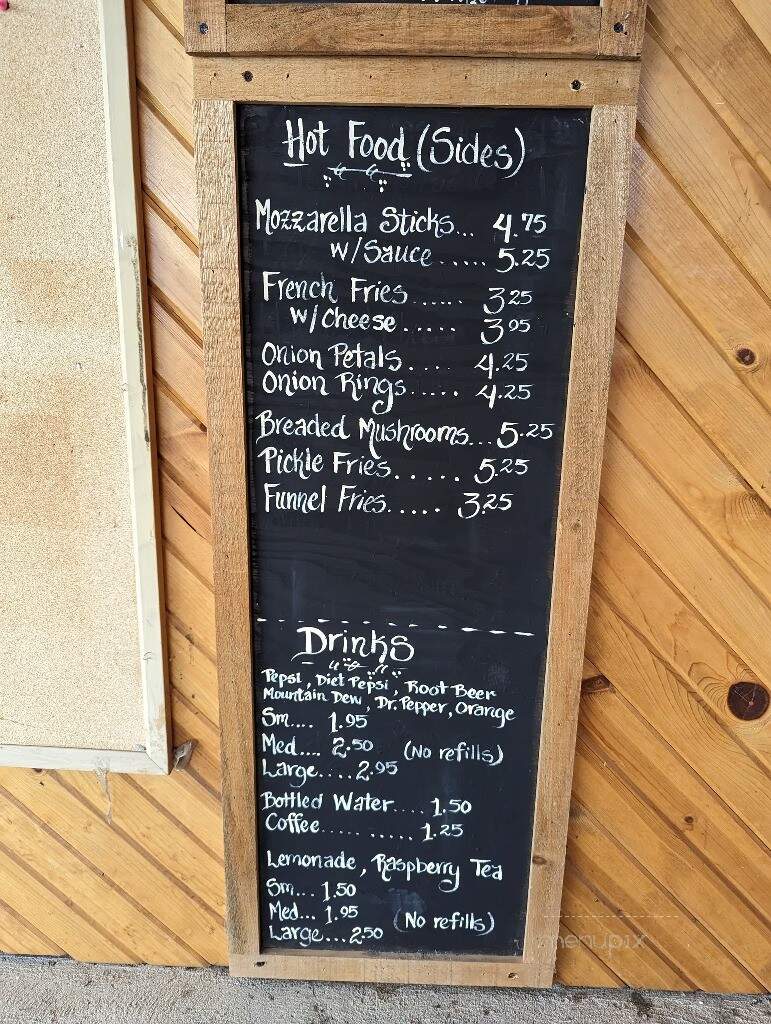 Hot Food (Sides)
Mozzarella Sticks... 4.75
w/Sauce..... 5.25
French Fries...... 3.25
w/cheese..... 3.95
Onion Petals.... 4.25
Onion Rings..... 4.25
Breaded Mushrooms...5.25
Pickle Fries..... 5.25
Funnel Fries..... 3.25
Drinks
Pepsi, Diet Pepsi, Root Beer
Mountain Dew, Dr. Pepper, Orange
Sm.... 1.95
Med.... 2.50 (No refills)
Large....2.95
Bottled Water.... 1.50
Coffee........... 1.25
Lemonade, Raspberry Tea
Sm... 1.50
Med... 1.95 (No refills)
Large...2.50
menupix